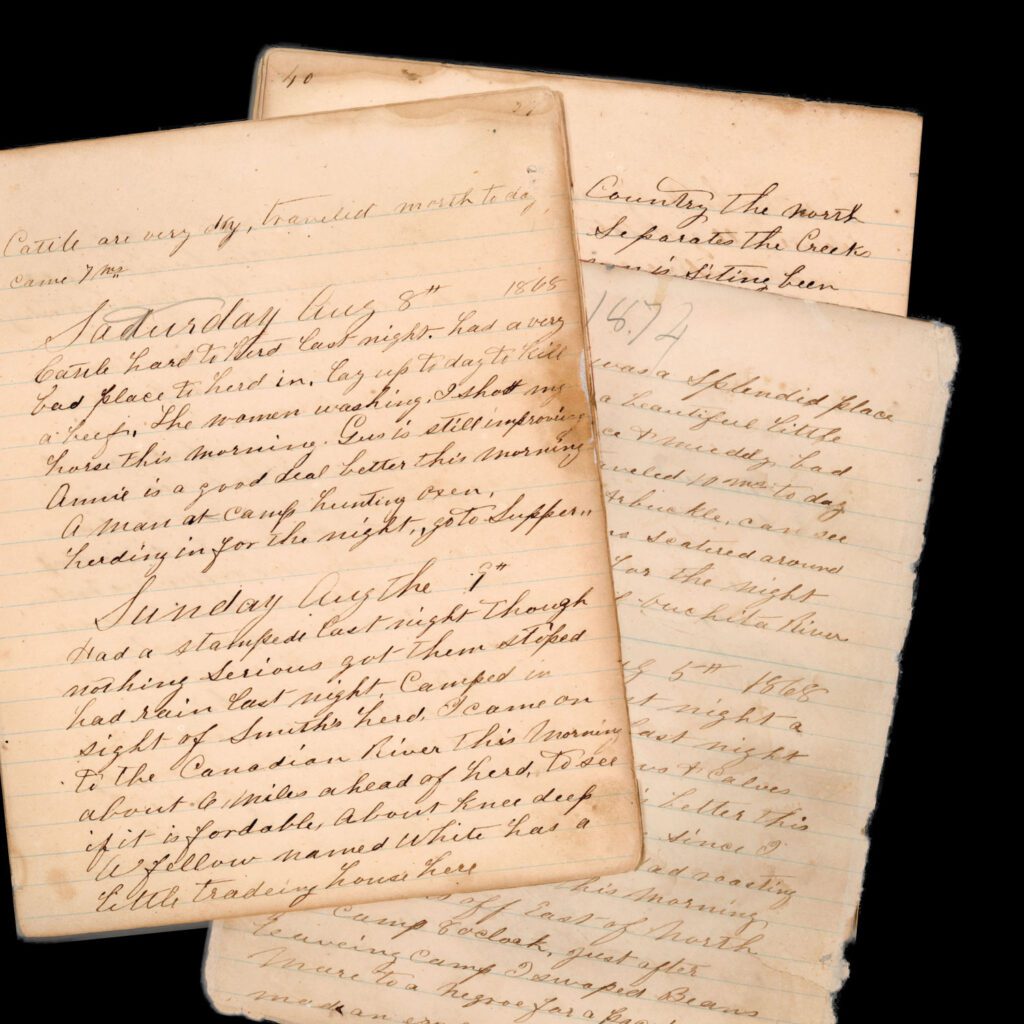 40
Country the north
Separates the Creeks
is Siting been
Cattle are very dry, traveled north to day,
came 7 ms
Saturday Aug 8th 1868
Cattle hard to herd last night. had a very
bad place to herd in, lay up to day to kill
a beef. The women washing. I shod my
horse this morning. Gus is still improving
Annie is a good deal better this morning
A man at camp hunting oxen,
herding in for the night, go to Supper
Sunday Aug the 9th
Had a stampede last night though
nothing Serious got them stoped
had rain last night. Camped in
sight of Smiths herd, I came on
to the Canadian River this Morning
about 6 miles ahead of herd, to see
if it is fordable, About knee deep
A fellow named White has a
little tradeing house here
1874
was a Splendid place
a beautiful little
ce & muddy, bad
veled 10 ms to day
Arbuckle, can see
ns scatered around
for the night
Ouchita River
5th 1868
st night a
last night
ws & Calves
is better this
since I
had roasting
this morning
off East of North
Camp 8 oclock, just after
leaveing Camp I swaped Beans
Mare to a negroe for a
made an